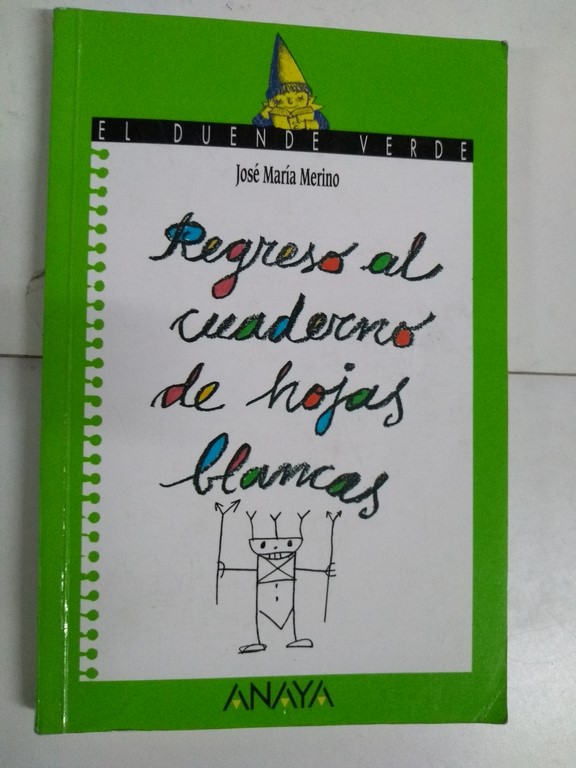 EL DUENDE VERDE
José María Merino
Regreso al
cuaderno
de hojas
blancas
ANAYA